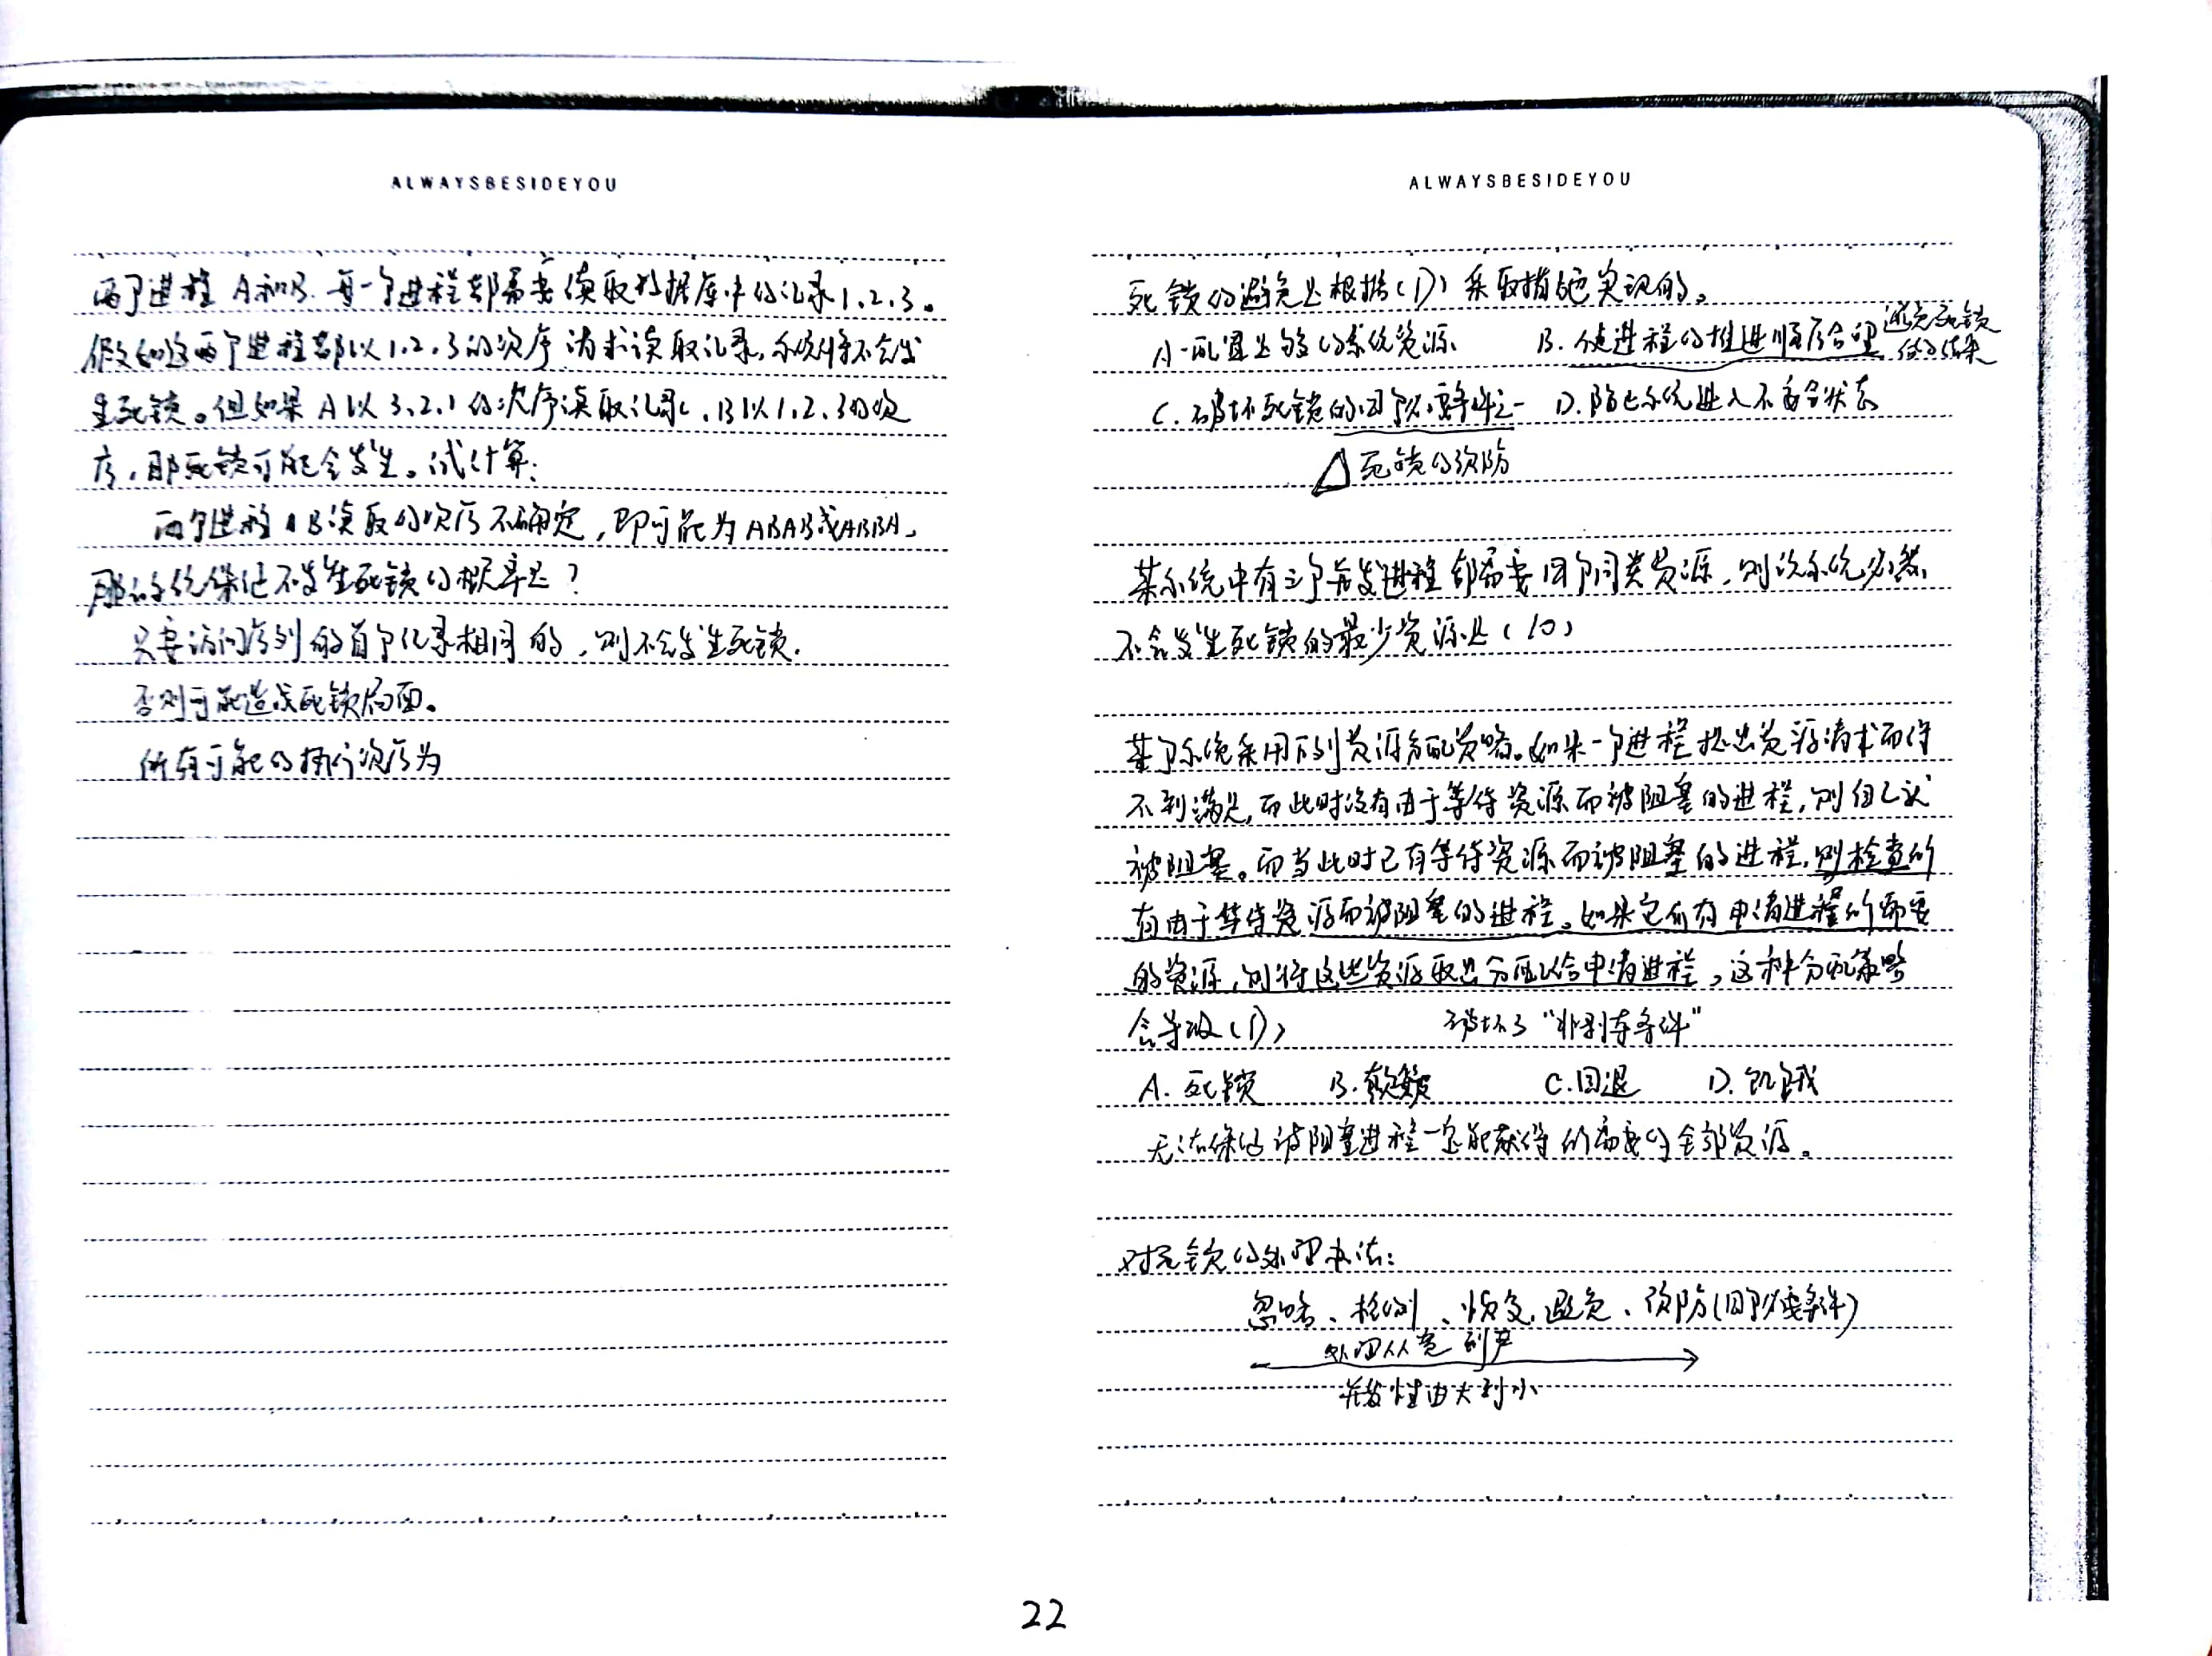 ALWAYSBESIDEYOU
两个进程A和B.每一个进程都需要读取数据库中的记录1.2.3。
假如这两个进程都以1.2.3的次序请求读取记录,系统将不会发
生死锁。但如果A以3.2.1的次序读取记录,B以1.2.3的次
序,那死锁可能会发生。试计算:
两个进程AB读取的次序不确定,即可能为ABAB或ABBA,
那么系统保证不发生死锁的概率是?
只要访问序列的首个记录相同的,则不会发生死锁.
否则可能造成死锁局面。
所有可能的执行次序为
ALWAYSBESIDEYOU
死锁的避免是根据(D)采取措施实现的。
A.配置足够的系统资源 B.使进程的推进顺序合理 避免死锁
C.破坏死锁的四个必要条件之一 D.防止系统进入不安全状态
△死锁的预防
某系统中有三个并发进程都需要四个同类资源,则该系统必然
不会发生死锁的最少资源是(10)
某个系统采用下列资源分配策略。如果一个进程提出资源请求而得
不到满足,而此时没有由于等待资源而被阻塞的进程,则自己就
被阻塞。而当此时已有等待资源而被阻塞的进程,则检查所
有由于等待资源而被阻塞的进程。如果它们有申请进程所需要
的资源,则将这些资源取出分配给申请进程,这种分配策略
会导致(D) 破坏了"非剥夺条件"
A.死锁 B.颠簸 C.回退 D.饥饿
无法保证被阻塞进程一定能获得所需要的全部资源。
对死锁的处理办法:
忽略、检测、恢复,避免、预防(四个必要条件)
处理从宽到严
并发性由大到小
22